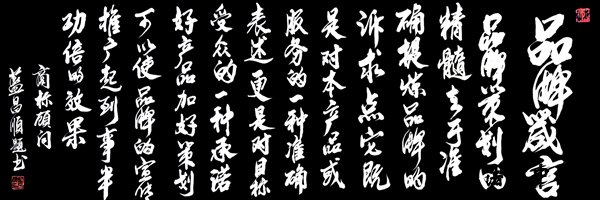 品牌箴言
品牌策划的
精髓在于准
确提炼品牌的
诉求点它既
是对本产品或
服务的一种准确
表达更是对目标
受众的一种承诺
好产品加好策划
可以使品牌的宣传
推广起到事半
功倍的效果
商标顾问
蓝易顺题书